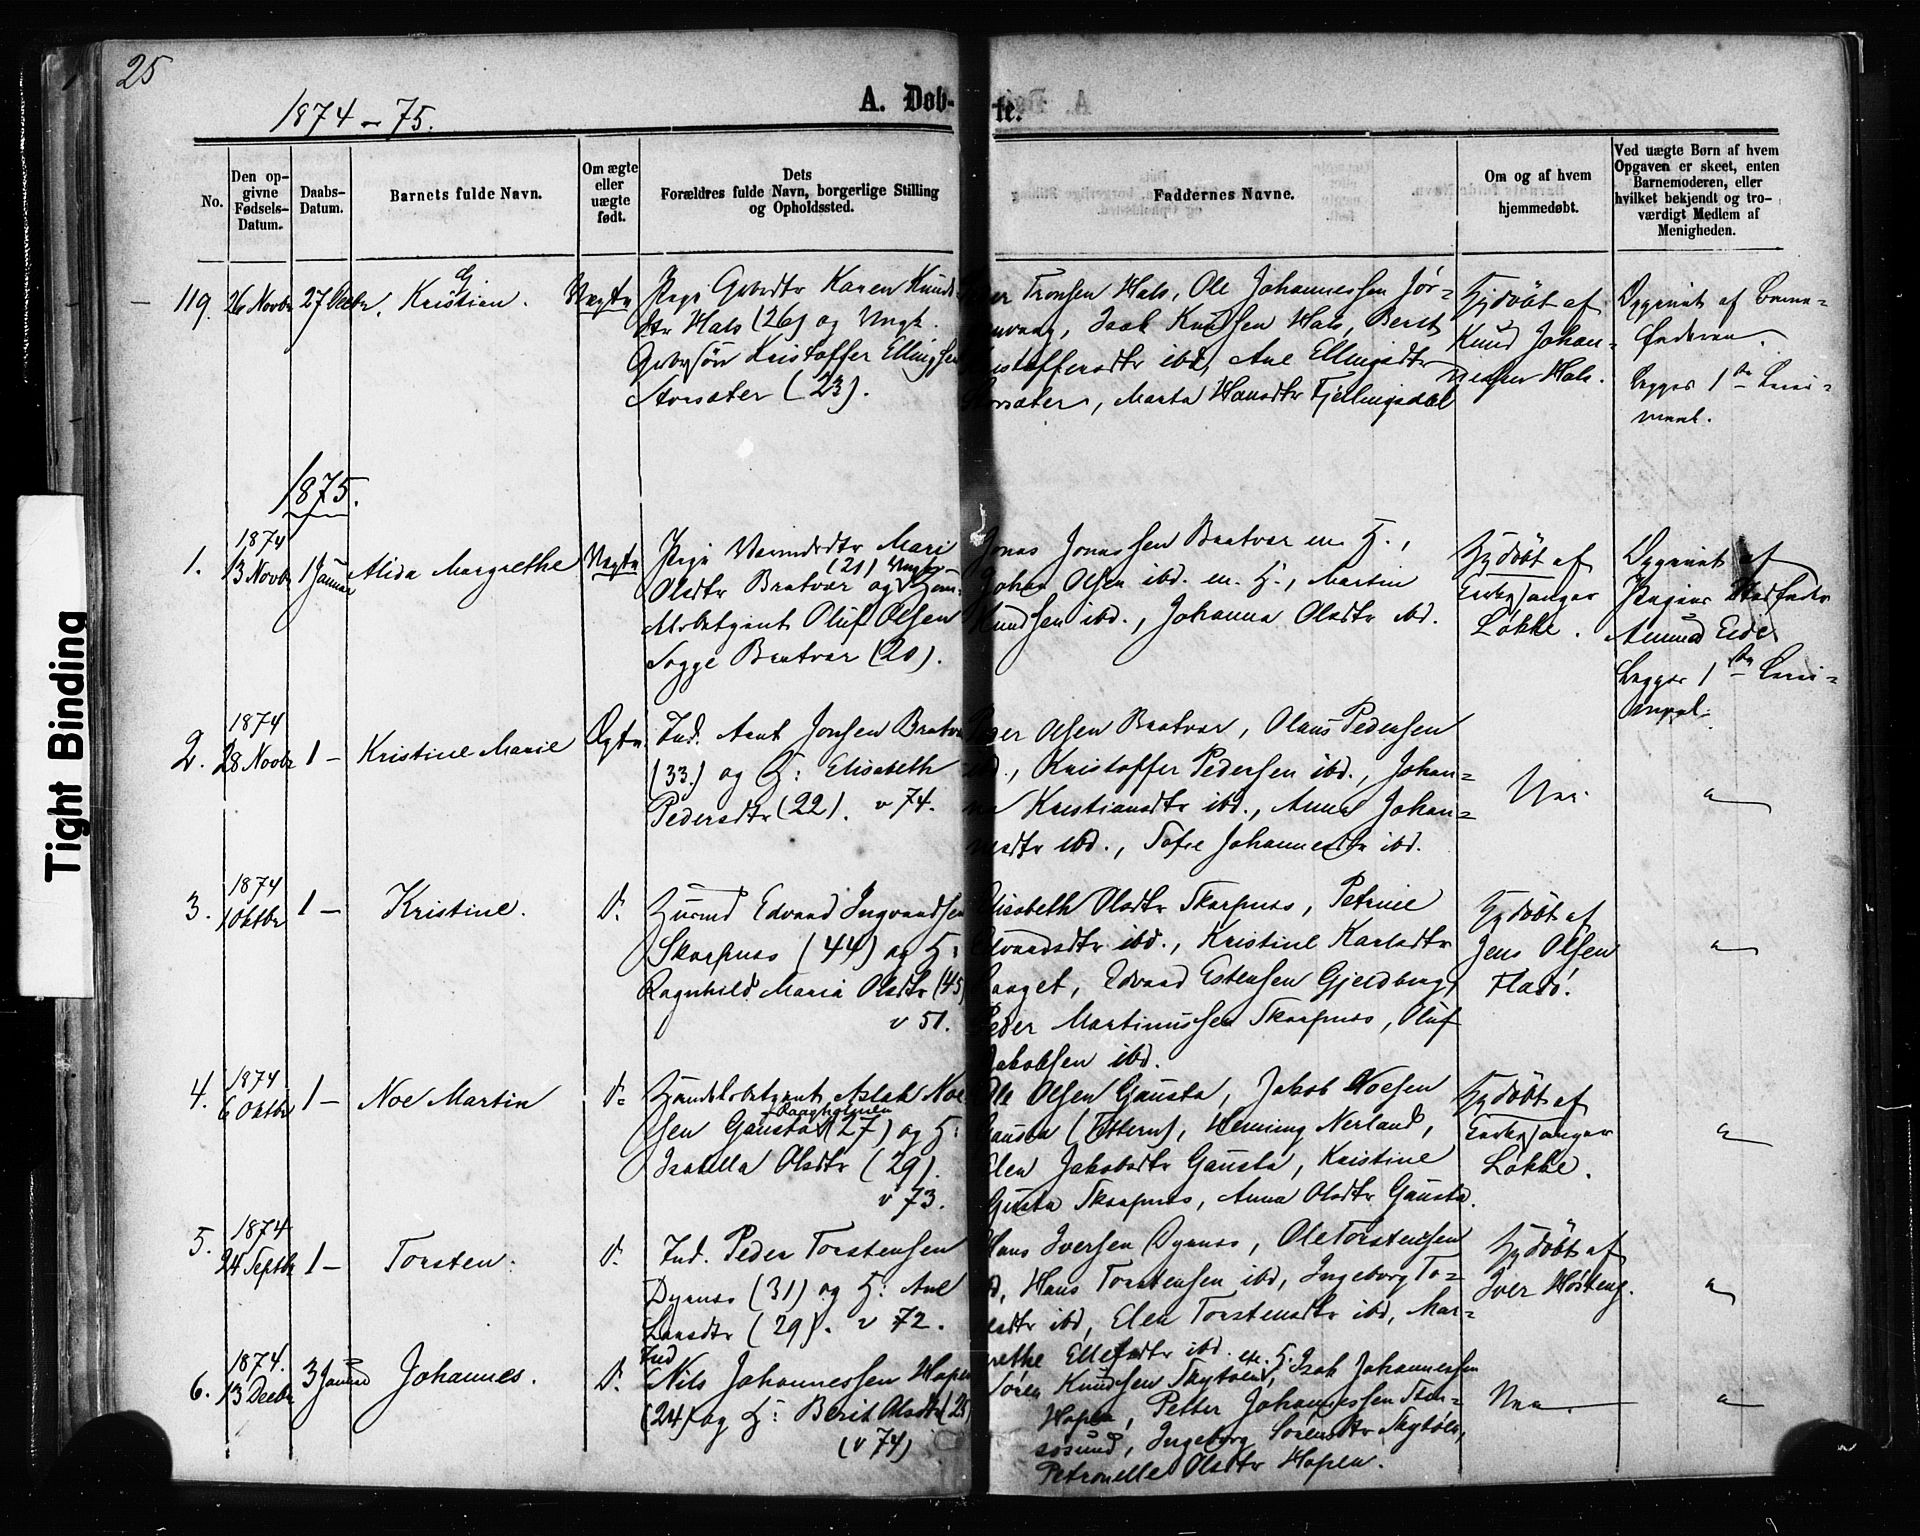 25
1874-75.
A. Døb-
te.
No.
Den op-
givne
Fødsels-
Datum.
Daabs-
Datum.
Barnets fulde Navn.
Om ægte
eller
uægte
født.
Dets
Forældres fulde Navn, borgerlige Stilling
og Opholdssted.
Faddernes Navne.
Om og af hvem
hjemmedøbt.
Ved uægte Børn af hvem
Opgaven er skeet, enten
Barnemoderen, eller
hvilket bekjendt og tro-
værdigt Medlem af
Menigheden.
119. 26 Novbr 27 Decbr. Kristian. Uægte
Pige Gbrdtr Karen Knuds-
dtr Hals (26) og Ungk.
Gbrsøn Kristoffer Ellingsen
Storsæter (23).
Tronsen Hals, Ole Johannessen Jør-
envaag, Isak Knudsen Hals, Berit
Kristoffersdtr ibd, Ane Ellingsdtr
Storsæter, Marta Hansdtr Fjellingsdal
Hjdöbt af
Knud Johan-
nessen Hals.
Opgivet af Barne-
faderen.
Begges 1ste Leier-
maal.
1875.
1. 1874
13 Novbr 1 Januar Alida Margrethe Uægte
Pige Mari
Olsdtr Bratvær (21) og Ungk.
Oluf Olsen
Sogge Bratvær (20).
Jonas Jonassen Bratvær m. H.,
Johan Olsen ibd. m. H., Martin
Knudsen ibd., Johanna Olsdtr ibd.
Hjdöbt af
Kirkesanger
Løkke.
Opgivet af
Pigens Stedfader
Amund Eide
Begges 1ste Leier-
maal.
2. 1874
28 Novbr 1 - Kristine Marie Ægte
Ind. Arnt Jonsen Bratvær
(33) og H: Elisabeth
Pedersdtr (22). v 74.
Peder Olsen Bratvær, Olaus Pedersen
ibd., Kristoffer Pedersen ibd., Johan-
na Kristiansdtr ibd., Anna Johan-
nesdtr ibd., Sofie Johannesdtr ibd.
Nei.
"
3. 1874
1 Oktbr 1 - Kristine. d.
Husmd Edvard Ingvardsen
Skarpnes (44) og H:
Ragnhild Maria Olsdtr (45)
v 51.
Elisabeth Olsdtr Skarpnes, Petrine
Edvardsdtr ibd., Kristine Karlsdtr
Vaaget, Edvard Estensen Gjeldberg,
Peder Martinussen Skarpnes, Oluf
Jakobsen ibd.
Hjdöbt af
Jens Olsen
Fladö.
"
4. 1874
6 Oktbr 1 - Noe Martin d=
Handelsbetjent Aslak Noe-
sen Gausta (27) og H:
Isabella Olsdtr (29).
v 73.
Ole Olsen Gausta, Jakob Noesen
Gausta (Otternes), Heming Nerland,
Elen Jakobsdtr Gausta, Kristine
Gusta Skarpnes, Anna Olsdtr Gausta.
Hjdöbt af
Kirkesanger
Løkke.
"
5. 1874
24 Septbr 1 - Torsten. d.
Ind. Peder Torstensen
Dyrnes (31) og H: Ane
Larsdtr (29). v 72.
Hans Iversen Dyrnes, Ole Torstensen
ibd, Hans Torstensen ibd, Ingeborg To-
resdtr ibd, Elen Torstensdtr ibd, Mar-
grethe Ellefsdtr ibd.
Hjdöbt af
Iver Hösteng.
"
6. 1874.
13 Decbr 3 Januar Johannes. d.
Ind
Nils Johannessen Hopen
(24) og H: Berit Olsdtr (25)
(v 74)
Sören Knudsen Skytöen m. H., Isak Johannessen
Hopen, Petter Johannessen Stor-
sösund, Ingeborg Sørensdtr Skytöen,
Petronelle Olsdtr Hopen.
Nei.
"
Tight Binding